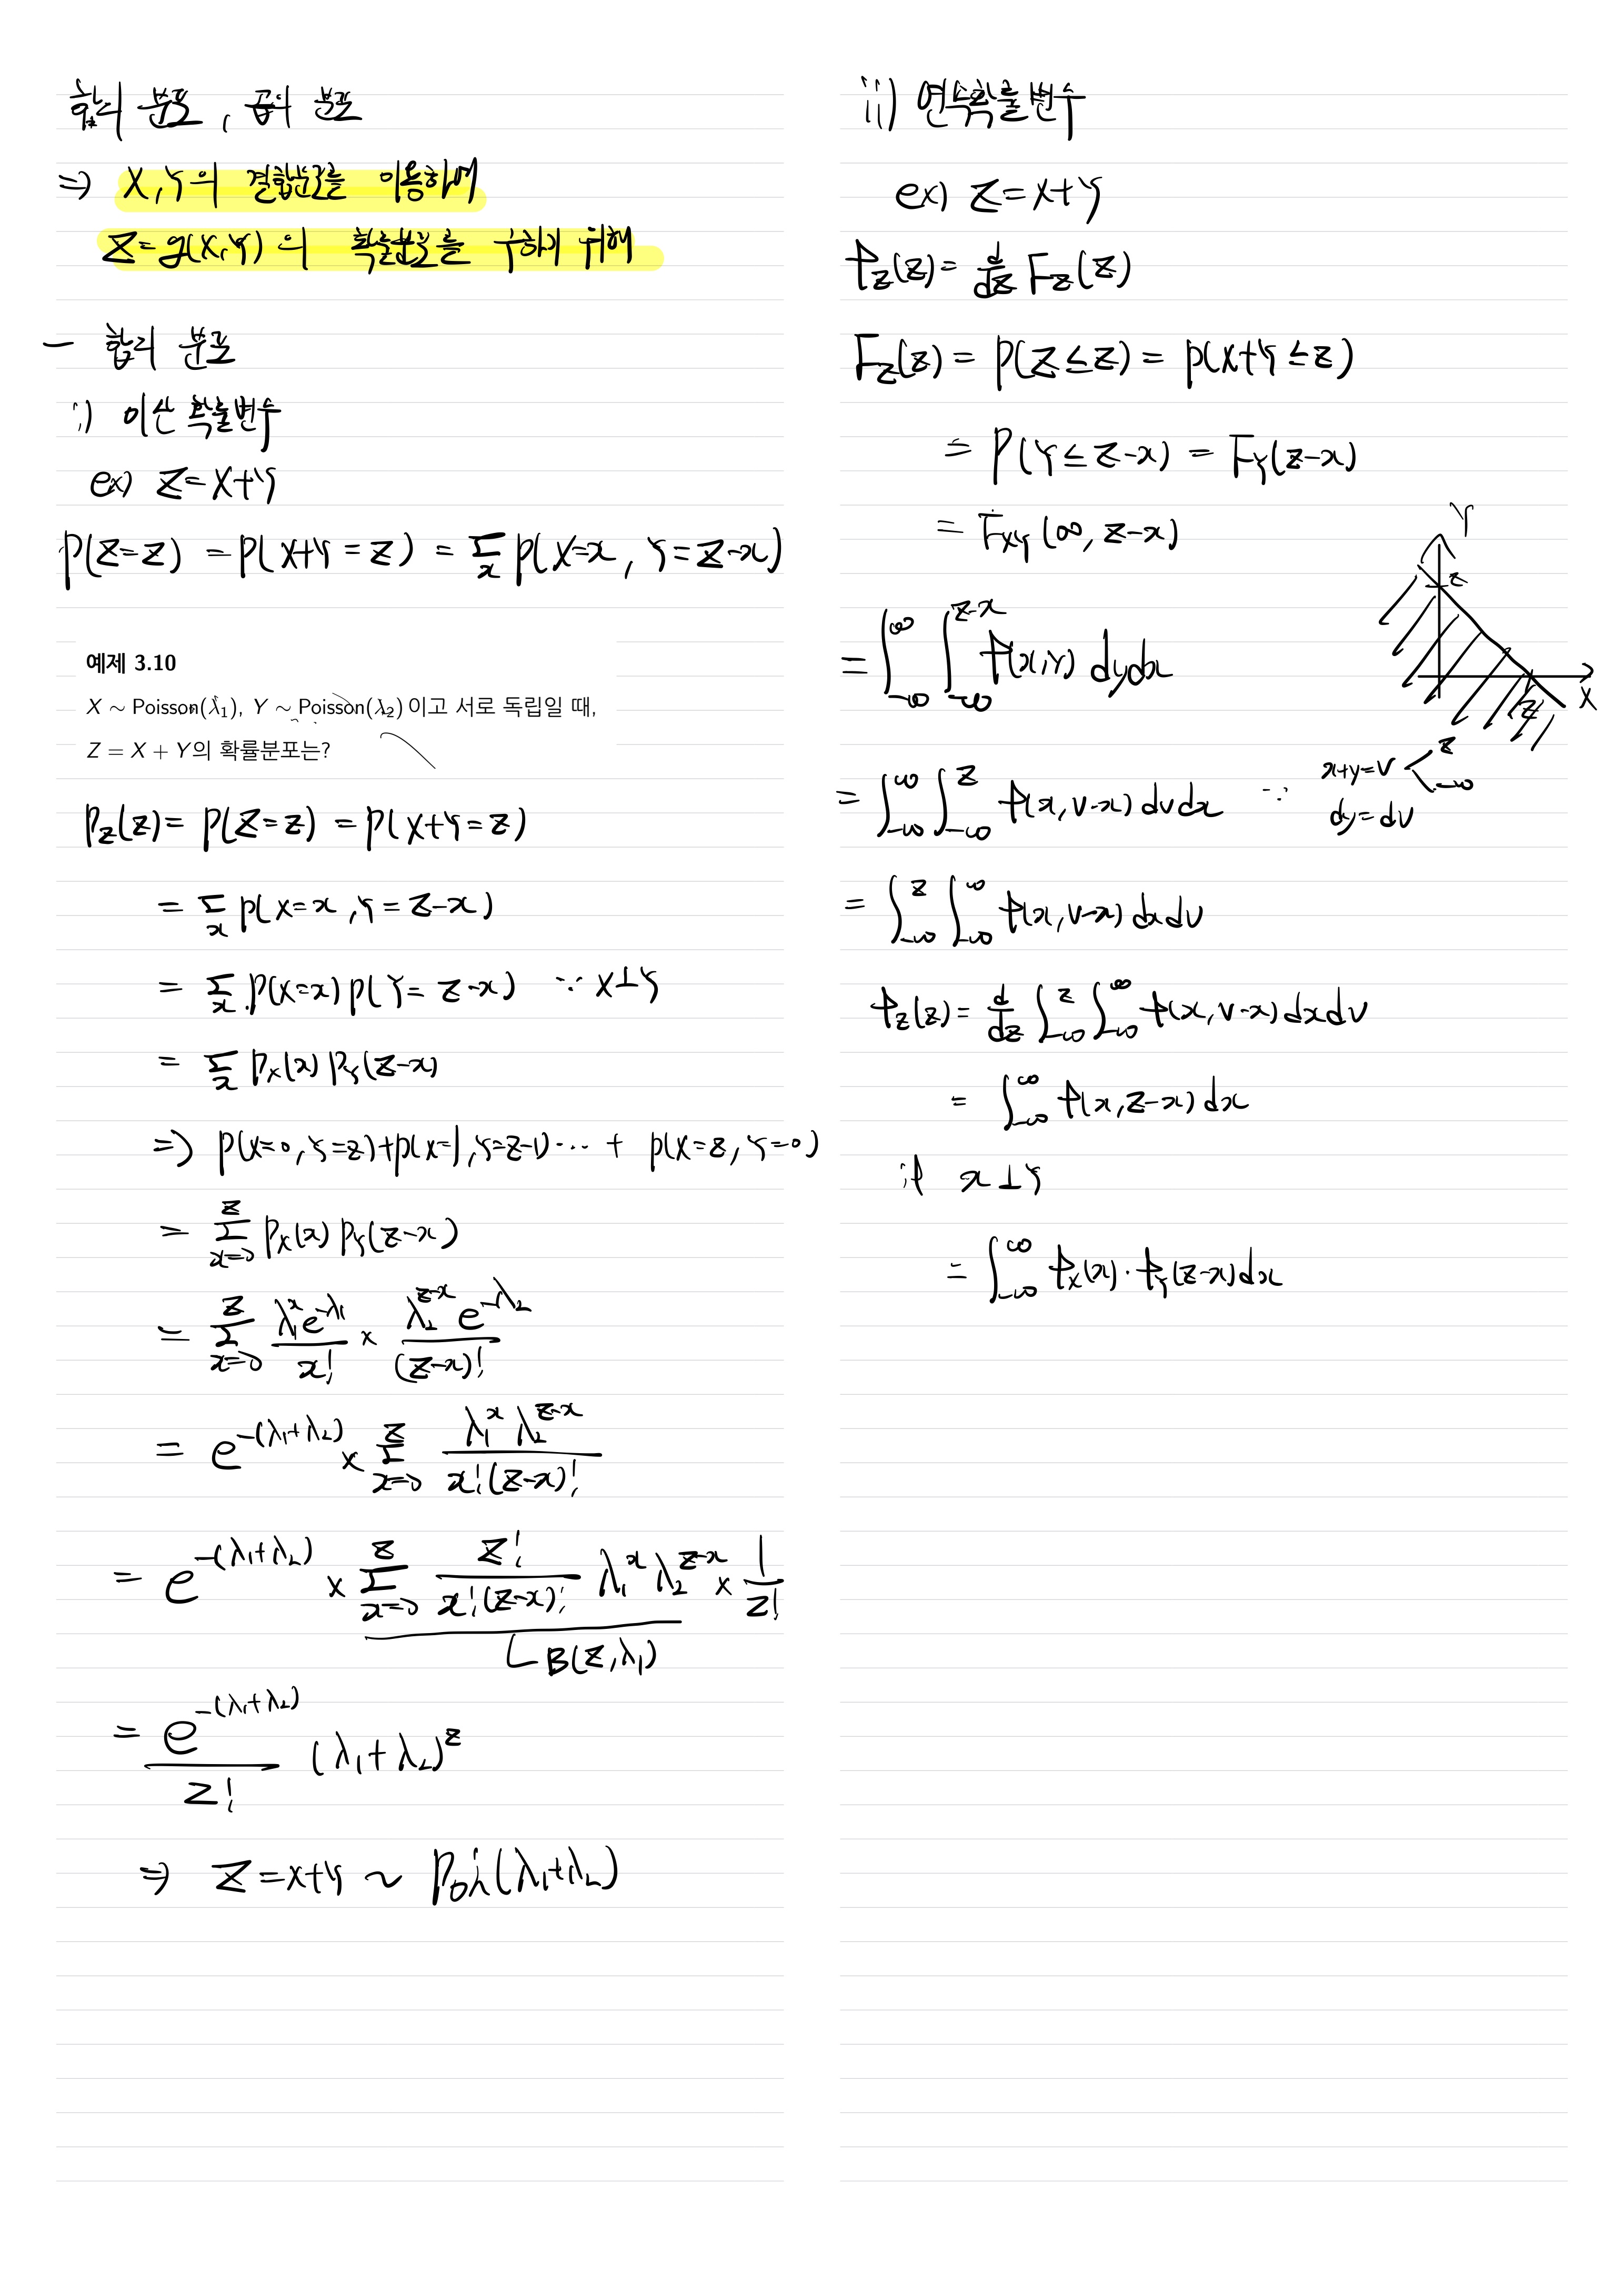 합의 분포, 곱의 분포
⇒ X,Y의 결합분포를 이용하여
Z=g(X,Y)의 확률분포를 구하기 위해
- 합의 분포
i) 이산 확률변수
ex) Z=X+Y
P(Z=z) = P(X+Y=z) = Σ_x P(X=x, Y=z-x)
예제 3.10
X ∼ Poisson(λ₁), Y ∼ Poisson(λ₂)이고 서로 독립일 때,
Z = X + Y의 확률분포는?
P_Z(z) = P(Z=z) = P(X+Y=z)
= Σ_x P(X=x, Y=z-x)
= Σ_x P(X=x) P(Y=z-x) ∵ X⊥Y
= Σ_x P_X(x) P_Y(z-x)
⇒ P(X=0, Y=z)+P(X=1, Y=z-1) ⋯ + P(X=z, Y=0)
= Σ_{x=0}^{z} P_X(x) P_Y(z-x)
= Σ_{x=0}^{z} λ₁^x e^{-λ₁} / x! × λ₂^{z-x} e^{-λ₂} / (z-x)!
= e^{-(λ₁+λ₂)} × Σ_{x=0}^{z} λ₁^x λ₂^{z-x} / x!(z-x)!
= e^{-(λ₁+λ₂)} × Σ_{x=0}^{z} z! / x!(z-x)! λ₁^x λ₂^{z-x} × 1/z!
B(z, λ₁)
= e^{-(λ₁+λ₂)} / z! (λ₁+λ₂)^z
⇒ Z=X+Y ~ Poi(λ₁+λ₂)
ii) 연속확률변수
ex) Z=X+Y
f_Z(z) = d/dz F_Z(z)
F_Z(z) = P(Z≤z) = P(X+Y≤z)
= P(Y≤z-x) = F_Y(z-x)
= F_XY(∞, z-x)
Y
z
X
z
= ∫_{-∞}^{∞} ∫_{-∞}^{z-x} f(x,y) dydx
= ∫_{-∞}^{∞} ∫_{-∞}^{z} f(x, v-x) dvdx ∵ x+y=v < z -∞
dy=dv
= ∫_{-∞}^{z} ∫_{-∞}^{∞} f(x, v-x) dxdv
f_Z(z) = d/dz ∫_{-∞}^{z} ∫_{-∞}^{∞} f(x, v-x) dxdv
= ∫_{-∞}^{∞} f(x, z-x) dx
if x⊥Y
= ∫_{-∞}^{∞} f_X(x)·f_Y(z-x)dx